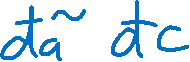 đã đc